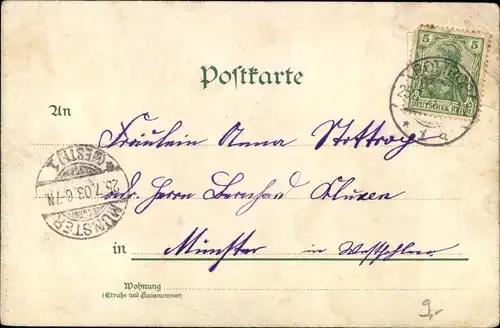 Postkarte
5 5
DEUTSCHES REICH
An
Fräulein Anna
adr. Herrn Bernhard
in Münster in Westfalen
Wohnung
(Straße und Hausnummer)
MÜNSTER
(WESTF.) 1
25.7.03.6-7N
* 1 a
9,-